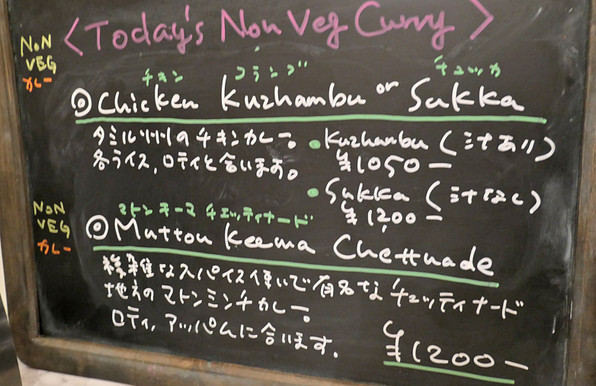 〈Today's Non Veg Curry〉
NON VEG カレー
チキン クランブ チュッカ
◎Chicken Kuzhambu or Sukka
タミル州のチキンカレー。
各ライス、ロティと合います。
•Kuzhambu (汁あり)
¥1050-
•Sukka (汁なし)
¥1,200-
NON VEG カレー
マトンキーマ チェッティナード
◎Mutton Keema Chettnade
複雑なスパイス使いで有名なチェッティナード
地方のマトンミンチカレー。
ロティ、アッパムに合います。
¥1200-